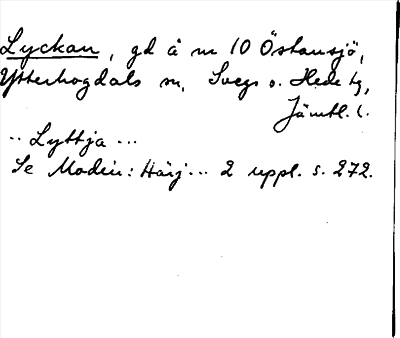 Lyckan, gd å nr 10 Östansjö,
Ytterhogdals sn, Svegs o. Hede tg,
Jämtl. l.
.. Lyttja ...
Se Modin: Härj... 2 uppl. s. 272.